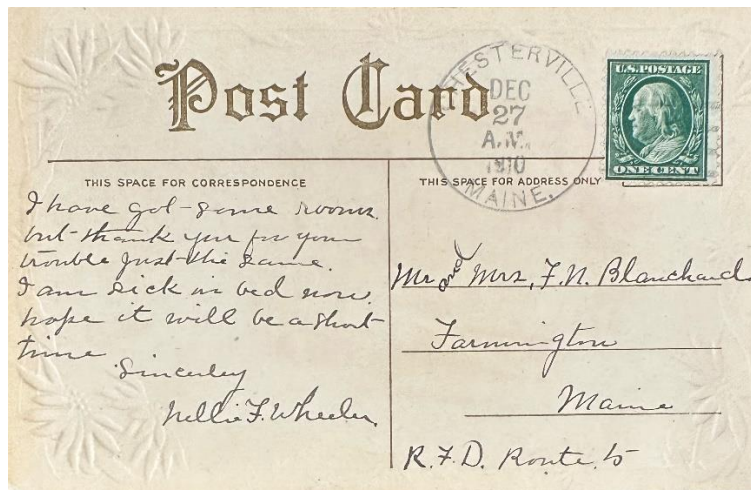 Post Card
CHESTERVILLE
DEC
27
A.M.
1910
MAINE.
U.S. POSTAGE
ONE CENT
THIS SPACE FOR CORRESPONDENCE
I have got some rooms.
but thank you for your
trouble just the same.
I am sick in bed now.
hope it will be a short
time
Sincerley
Nellie F. Wheeler.
THIS SPACE FOR ADDRESS ONLY
Mr and Mrs, F. N. Blanchard.
Farmington
Maine
R. F. D. Route. 5